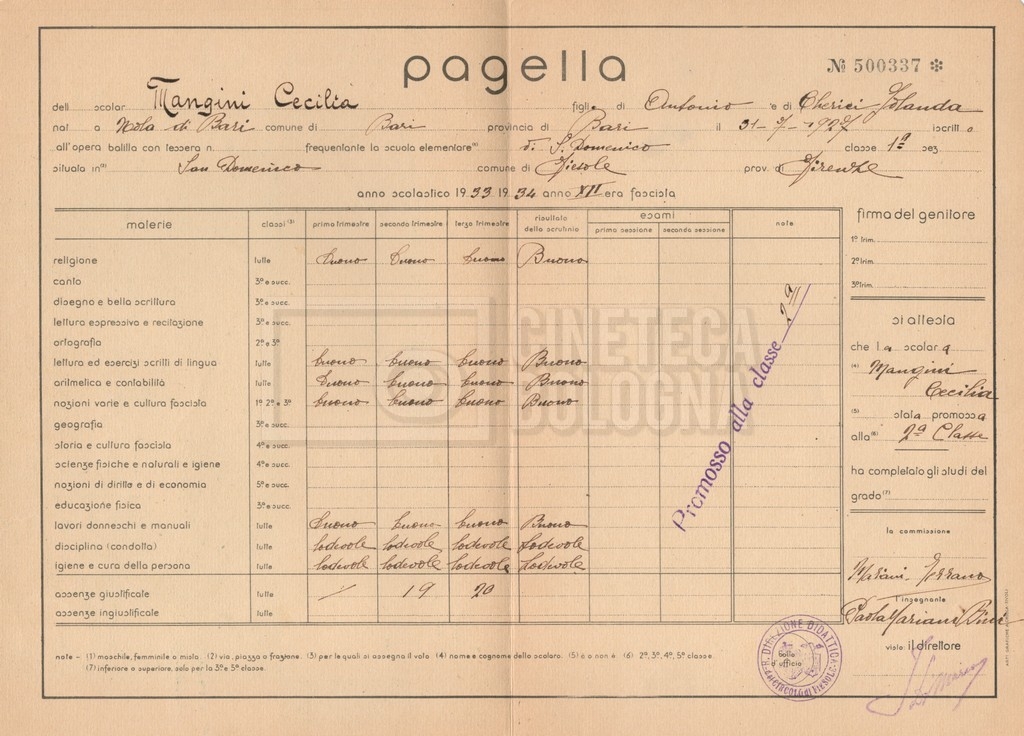 pagella
№ 500337 *
dell scolar Mangini Cecilia figlia di Antonio e di Cherici Jolanda
nat a Mola di Bari comune di Bari provincia di Bari il 31-7-1927 iscritt o
all'opera balilla con tessera n. frequentante la scuola elementare(1) di S. Domenico classe 1ª sez.
situata in(2) San Domenico comune di Fiesole prov. di Firenze
anno scolastico 1933 1934 anno XII era fascista
materie classi (3) primo trimestre secondo trimestre terzo trimestre risultato dello scrutinio esami prima sessione seconda sessione note
religione tutte buono buono buono Buono
canto 3ª e succ.
disegno e bella scrittura 3ª e succ.
lettura espressiva e recitazione 3ª e succ.
ortografia 2ª e 3ª
lettura ed esercizi scritti di lingua tutte buono buono buono Buono
aritmetica e contabilità tutte buono buono buono Buono
nozioni varie e cultura fascista 1ª 2ª e 3ª buono buono buono Buono
geografia 3ª e succ.
storia e cultura fascista 4ª e succ.
scienze fisiche e naturali e igiene 4ª e succ.
nozioni di diritto e di economia 5ª e succ.
educazione fisica 3ª e succ.
lavori donneschi e manuali tutte buono buono buono Buono
disciplina (condotta) tutte lodevole lodevole lodevole Lodevole
igiene e cura della persona tutte lodevole lodevole lodevole Lodevole
assenze giustificate tutte / 19 20
assenze ingiustificate tutte
Promosso alla classe 2ª
CINETECA
BOLOGNA
firma del genitore
1º trim.
2º trim.
3º trim.
si attesta
che la scolara
(4) Mangini
Cecilia
(5) stata promossa
alla(6) 2ª Classe
ha completato gli studi del
grado(7)
la commissione
Mariani
l'insegnante
Paola Mariani Bini
visto il direttore
bollo d'ufficio
R. DIREZIONE DIDATTICA
note - (1) maschile, femminile o mista. (2) via, piazza o frazione. (3) per le quali si assegna il voto. (4) nome e cognome dello scolaro. (5) è o non è. (6) 2ª, 3ª, 4ª, 5ª classe.
(7) inferiore o superiore, solo per la 3ª e 5ª classe.